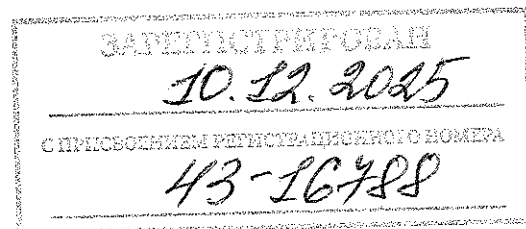 ЗАРЕГИСТРИРОВАН
10.12.2025
С ПРИСВОЕНИЕМ РЕГИСТРАЦИОННОГО НОМЕРА
43-16788